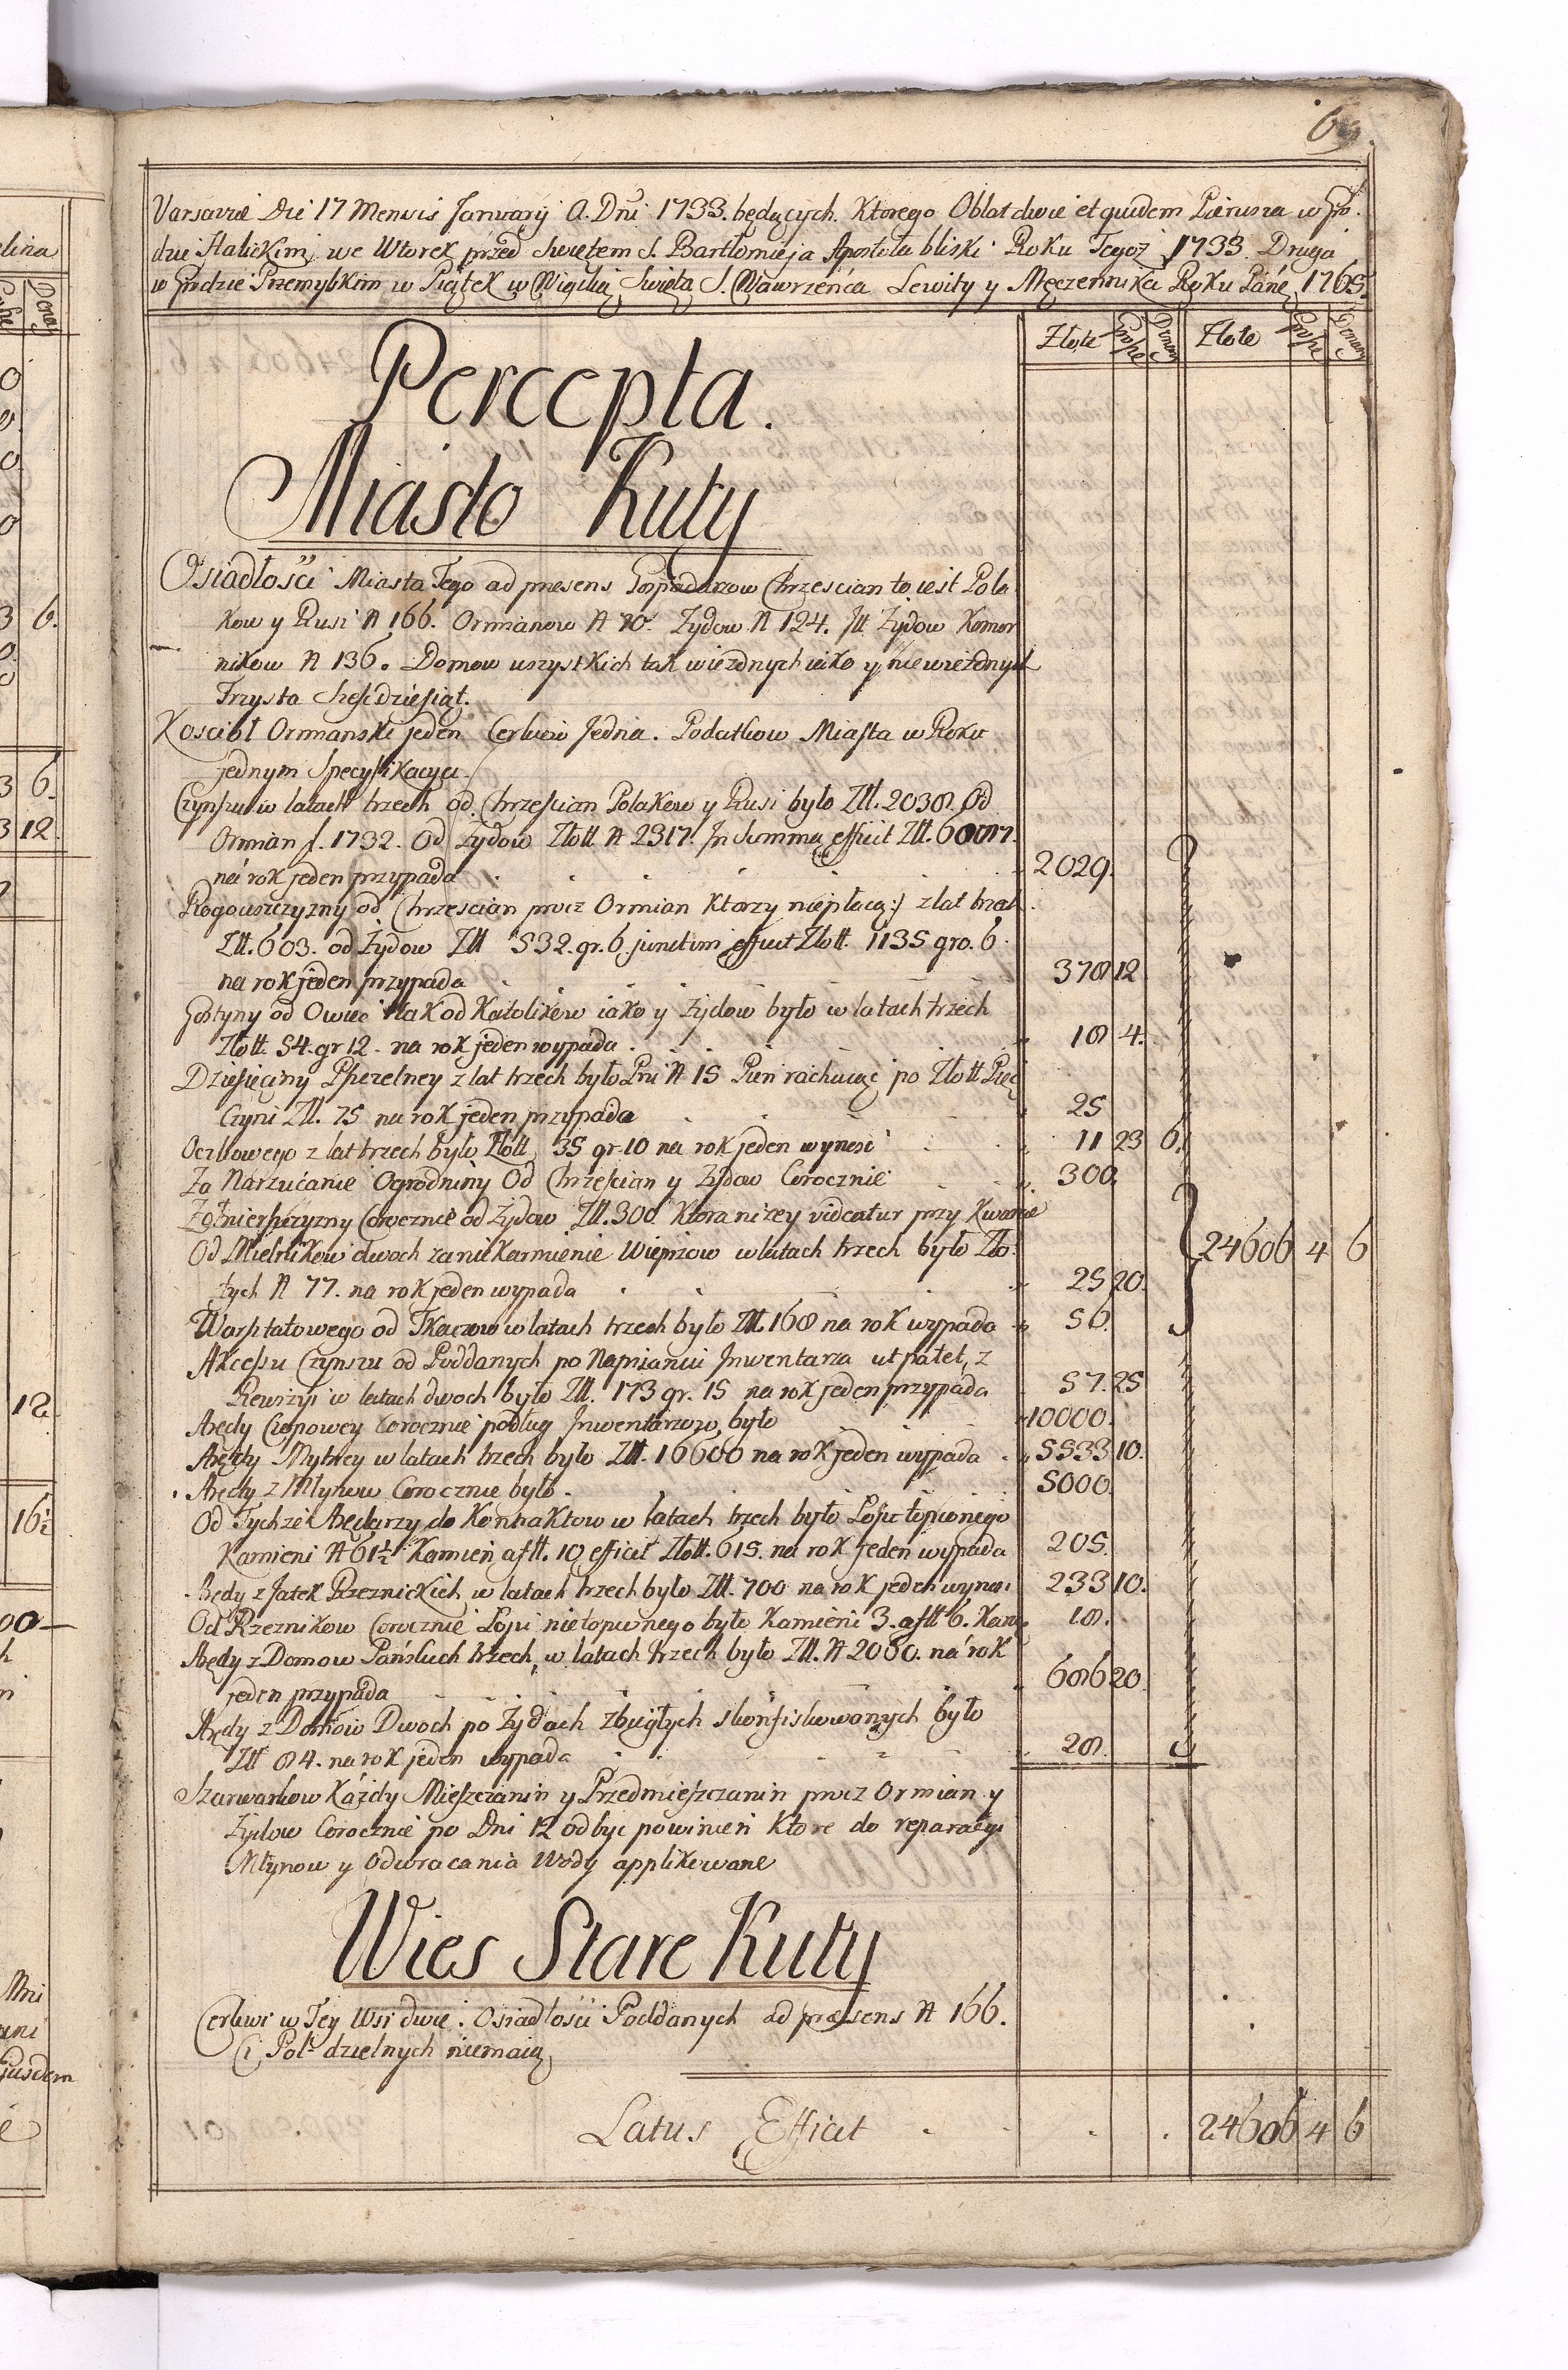 69.
Varsaviæ Die 17 Mensis January A. Dni 1733. będących. Ktorego Oblat dwie et quidem Pierwsza w Gro-
dzie Halickim we Wtorek przed Swiętem S. Bartłomieja Apostoła bliski Roku Tegoż 1733. Druga
w Grodzie Przemyskim w Piątek w Wigilią Swięta S. Wawrzeńca Lewity y Męczennika Roku Pańs. 1765.
Złote Grosze Denary Złote Grosze Denary
Percepta.
Miasto Kuty
Osiadłości Miasta Tego ad præsens Gospodarzow Chrzescian to iest Pola
kow y Rusi N 166. Ormianow N 70. Zydow N 124. Itt Zydow Komor
nikow N 136. Domow wszystkich tak wiezdnych iako y niewiezdnych
Trzysta Sześćdziesiąt.
Kosciół Ormanski jeden Cerkiew Jedna. Podatkow Miasta w Roku
jednym Specyfikacya.
Czynszu w latach trzech od Chrzescian Polakow y Rusi było Złt. 2038. Od
Ormian f. 1732. Od Zydow Złott N 2317. In Summa efficit Złt. 6087.
na rok jeden przypada 2029.
Rogowszczyzny od Chrzescian procz Ormian Ktorzy niepłacą :/ z lat trzech
Złt. 603. od Zydow Złt 532. gr. 6. junctim efficit Złott. 1135 gro. 6.
na rok jeden przypada 378 12
Gostyny od Owiec tak od Katolikow iako y Zydow było w latach trzech
Złott. 54. gr 12. na rok jeden wypada 18 4.
Dziesięciny Pszczelney z lat trzech było Pni N 15 Pień rachuiąc po Złott Pięć
czyni Zł. 75 na rok jeden przypada 25
Oczkowego z lat trzech było Złott. 35 gr. 10 na rok jeden wynosi 11 23 6.
Za Narzucanie Ogrodniny Od Chrzescian y Zydow Corocznie 300.
Zołnierszczyzny Corocznie od Zydow Złt. 300. Ktora nizey videatur przy Kwarcie
Od Mielnikow dwoch za niekarmienie Wieprzow w latach trzech było Zło- 24606 4 6
tych N 77. na rok jeden wypada 25 20.
Warsztatowego od Tkaczow w latach trzech było Złt. 168 na rok wypada 56.
Akcessu Czynszu od Poddanych po Napisaniu Inwentarza ut patet, z
Rewizyi w latach dwoch było Złt. 173 gr. 15 na rok jeden przypada 57. 25
Arędy Czopowey Corocznie podług Inwentarzow było 10000.
Arędy Mytney w latach trzech było Złt. 16600 na rok jeden wypada 5533 10.
Arędy z Młynow Corocznie było. 5000.
Od Tychże Arędarzy do Kontraktow w latach trzech było Łoju topionego
Kamieni N 61½ Kamień a flt. 10 efficit Złott. 615. na rok jeden wypada 205.
Arędy z Jatek Rzeznickich w latach trzech było Złt. 700 na rok jeden wynosi 233 10.
Od Rzeznikow Corocznie Łoju nietopionego było Kamieni 3. a flt 6. Kam. 18.
Arędy z Domow Pańskich trzech, w latach trzech było Złt. N 2060. na rok
jeden przypada 686 20.
Arędy z Domow Dwoch po Zydach zbiegłych skonfiskowanych było
Złt 84. na rok jeden wypada 28.
Szarwarkow Każdy Mieszczanin y Przedmieszczanin procz Ormian y
Zydow Corocznie po Dni 12 odbyc powinien Ktore do reparacyi
Młynow y Odwracania Wody applikowane
Wies Stare Kuty
Cerkwi w Tey Wsi dwie. Osiadłości Poddanych ad præsens N 166.
Ci Pol- dzielnych niemaią
Latus Efficit 24606 4 6